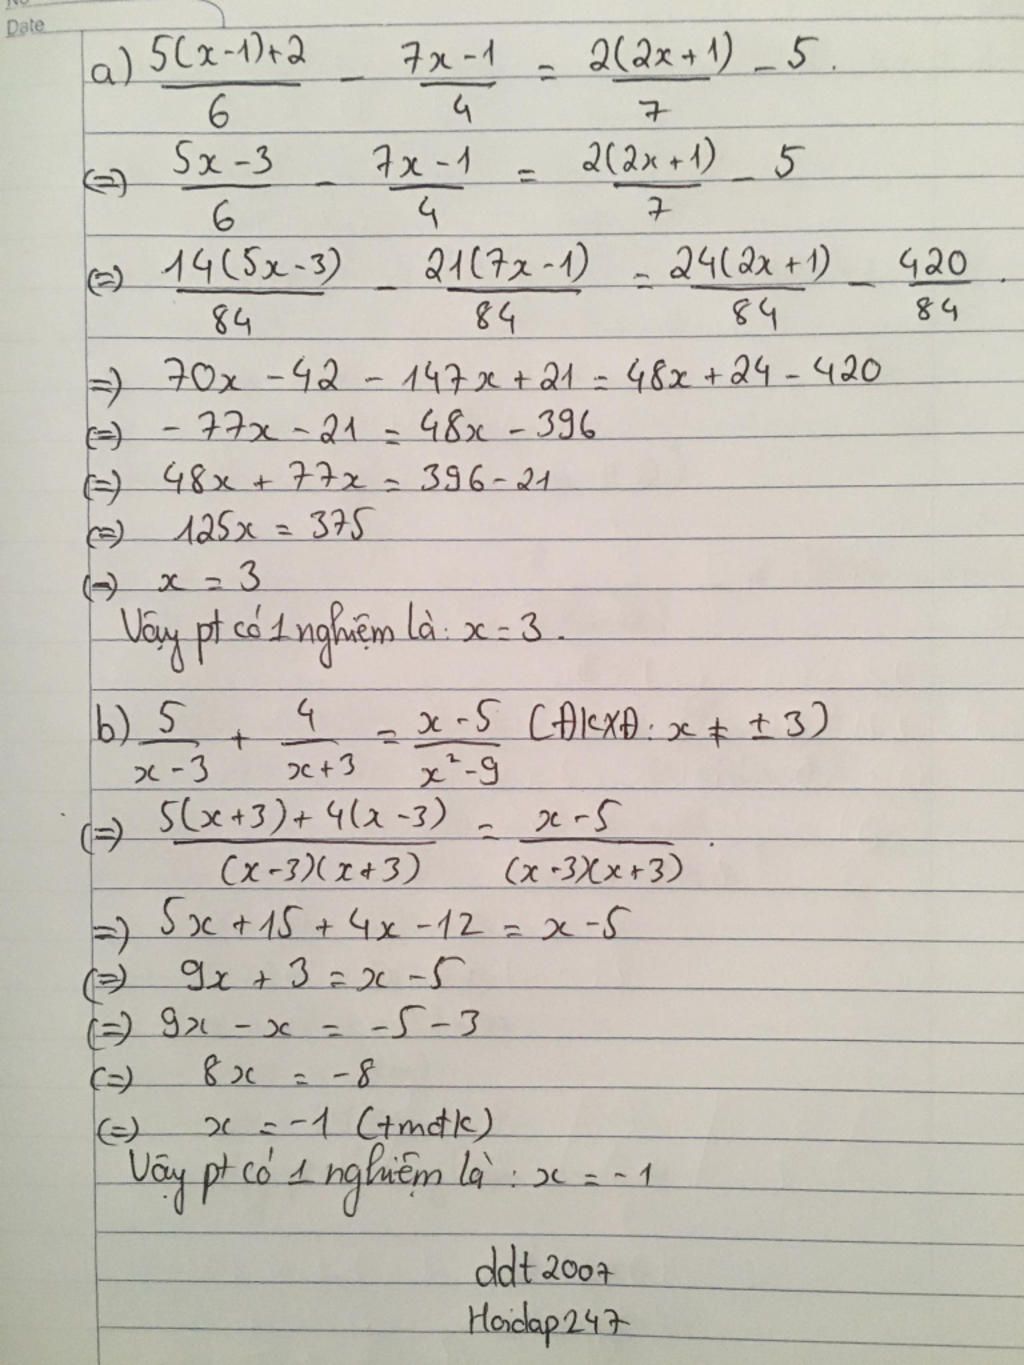 Date
a) (5(x-1)+2)/6 - (7x-1)/4 = (2(2x+1))/7 - 5.
(=) (5x-3)/6 - (7x-1)/4 = (2(2x+1))/7 - 5
(=) (14(5x-3))/84 - (21(7x-1))/84 = (24(2x+1))/84 - 420/84.
=) 70x - 42 - 147x + 21 = 48x + 24 - 420
(=) - 77x - 21 = 48x - 396
(=) 48x + 77x = 396 - 21
(=) 125x = 375
(=) x = 3
Vậy pt có 1 nghiệm là: x = 3.
b) 5/(x-3) + 4/(x+3) = (x-5)/(x²-9) (ĐKXĐ: x ≠ ± 3)
(=) (5(x+3)+4(x-3))/((x-3)(x+3)) = (x-5)/((x-3)(x+3)).
=) 5x + 15 + 4x - 12 = x - 5
(=) 9x + 3 = x - 5
(=) 9x - x = -5 - 3
(=) 8x = -8
(=) x = -1 (tmđk)
Vậy pt có 1 nghiệm là: x = -1
ddt2007
Hoidap247